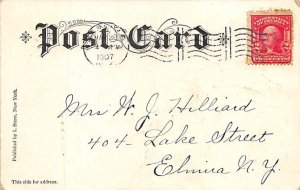 Post Card
1907
Mrs W. J. Hilliard
404- Lake Street
Elmira N.Y.
Published by J. Stern, New York.
This side for address.